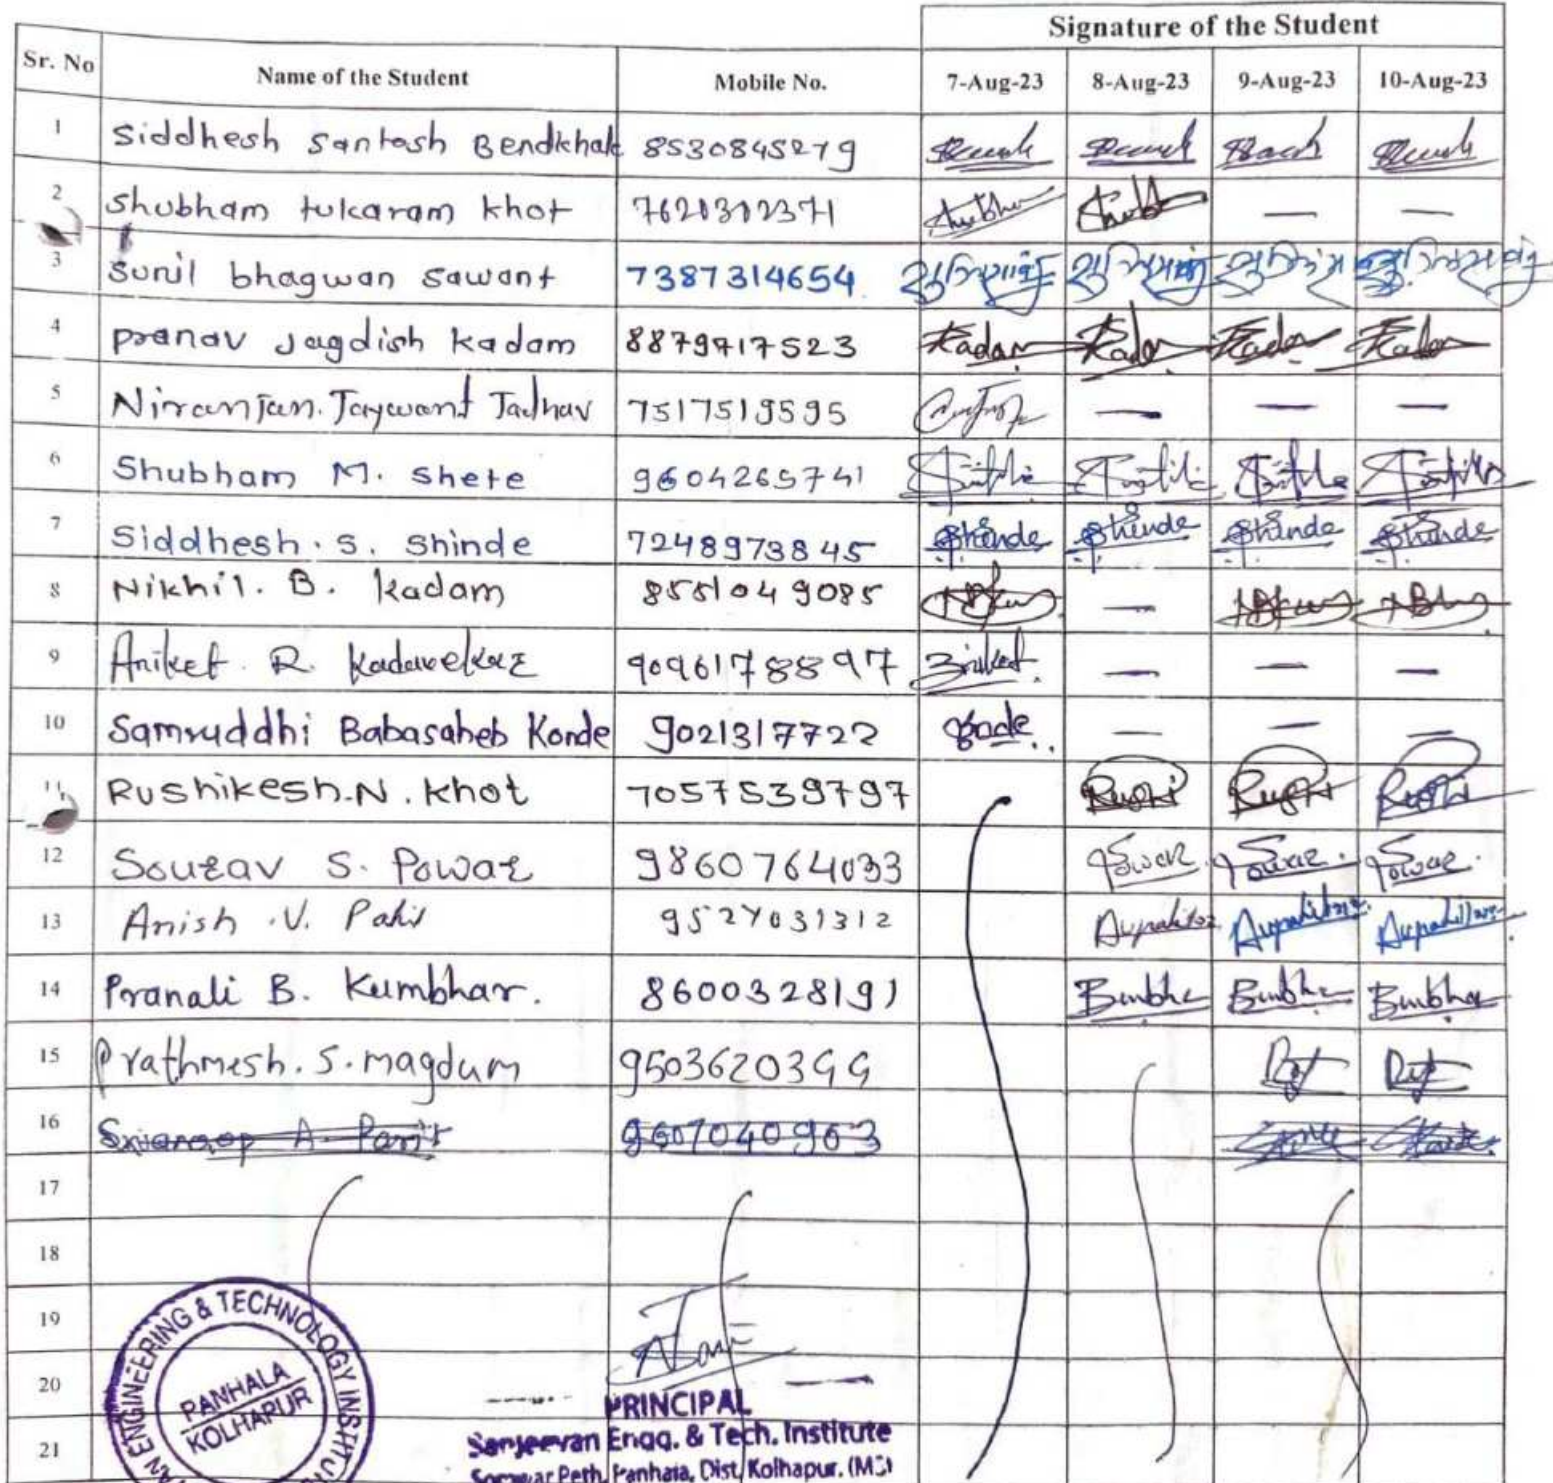 Signature of the Student
Sr. No Name of the Student Mobile No. 7-Aug-23 8-Aug-23 9-Aug-23 10-Aug-23
1 Siddhesh Santosh Bendkhale 8530845279
2 Shubham tukaram khot 7620302371 — —
3 Sunil bhagwan sawant 7387314654
4 Pranav Jagdish Kadam 8879717523 Kadam Kadam Kadam Kadam
5 Niranjan. Jaywant Jadhav 7517519595 — — —
6 Shubham M. Shete 9604265741
7 Siddhesh. S. Shinde 7248973845 Shinde Shinde Shinde Shinde
8 Nikhil. B. Kadam 8551049085 —
9 Aniket R. 9096178897 Aniket. — — —
10 Samruddhi Babasaheb Konde 9021317722 — — —
11 Rushikesh.N. Khot 7057539797 Rushi Rushi Rushi
12 Sourav S. Powar 9860764033 Powar. Powar. Powar.
13 Anish .V. 9527031312
14 Pranali B. Kumbhar. 8600328191
15 Prathmesh. S. magdum 9503620399
16 9607040963
17
18
19
20
21
ENGINEERING & TECHNOLOGY
PANHALA
KOLHAPUR
PRINCIPAL
Sanjeevan Engg. & Tech. Institute
Somwar Peth, Panhala, Dist. Kolhapur. (MS)